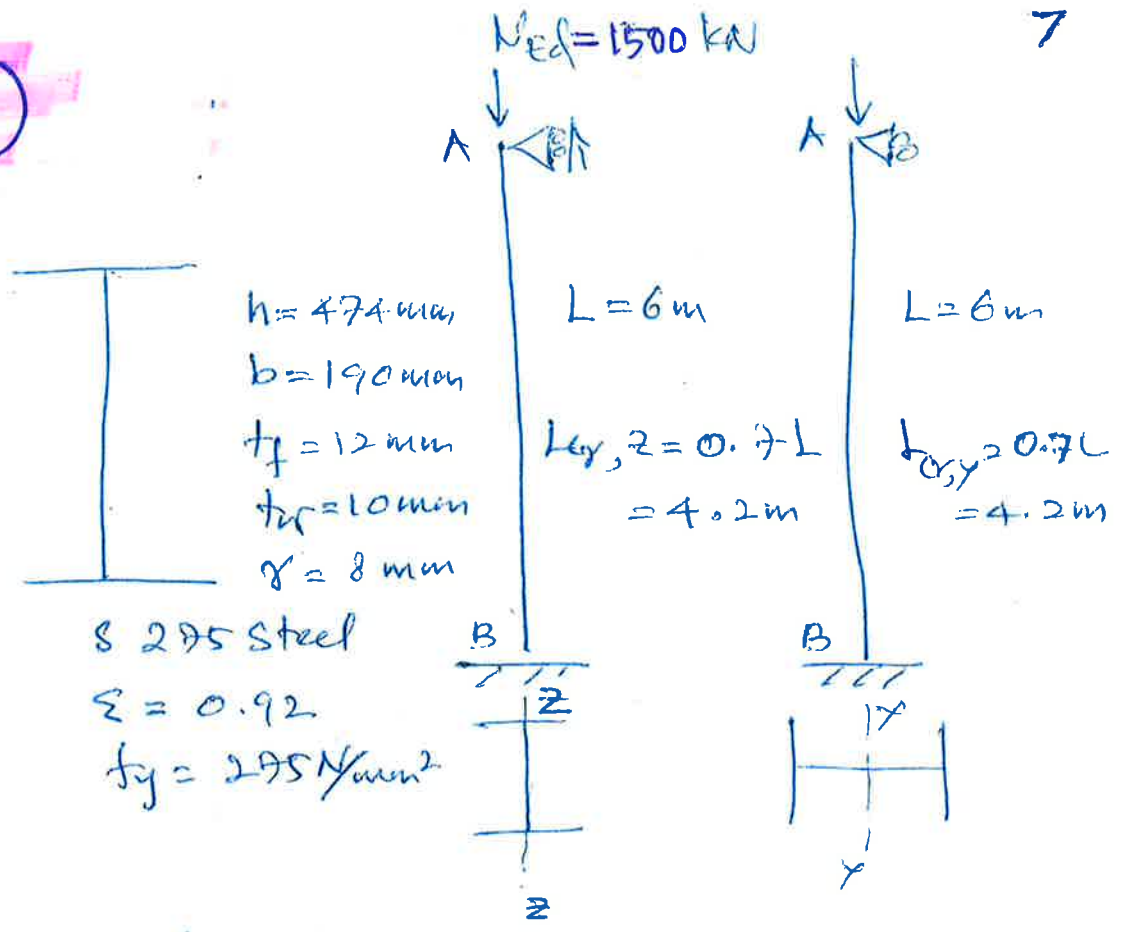 7
N_Ed = 1500 kN
A
A
h = 474 mm,
b = 190 mm
t_f = 12 mm
t_w = 10 mm
r = 8 mm
L = 6 m
L_cr,z = 0.7 L
= 4.2 m
L = 6 m
L_cr,y = 0.7L
= 4.2 m
S 275 Steel
ε = 0.92
f_y = 275 N/mm²
B
B
Z
Z
Y
Y